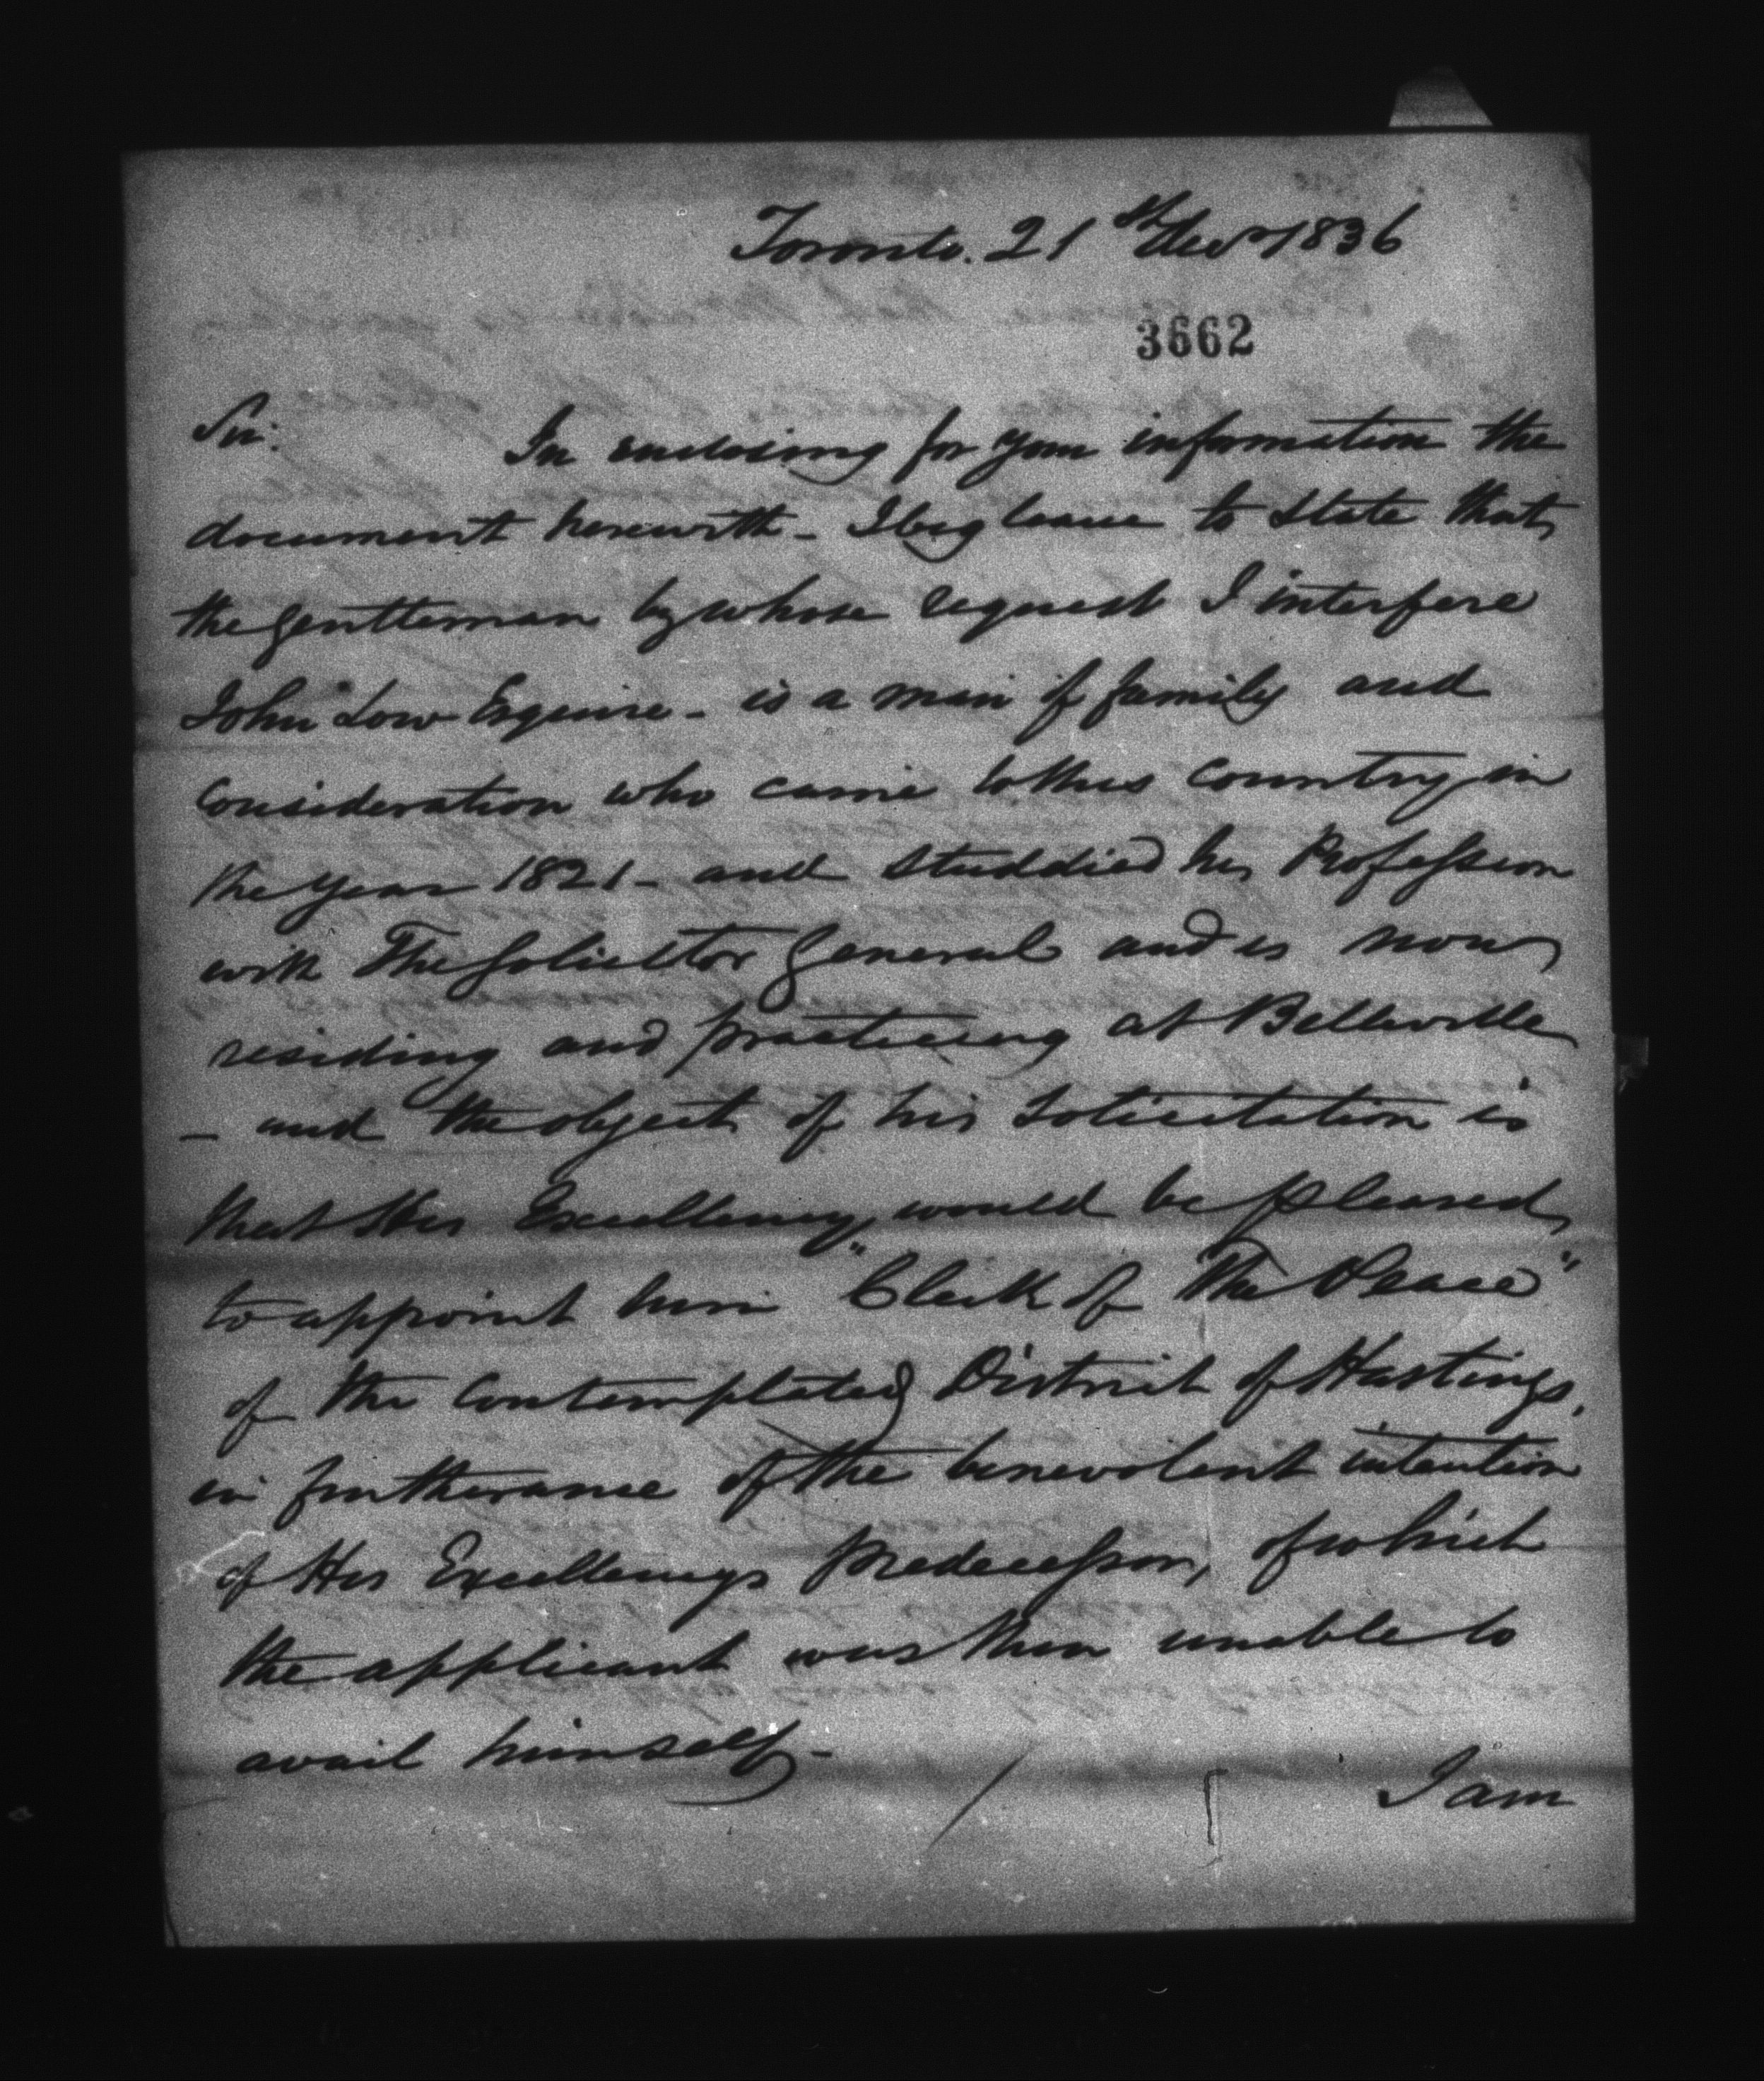 Toronto. 21st decr 1836
3662
Sir.
In enclosing for your information the
document herewith - I beg leave to state that
the gentleman by whose request I interfere
John Low Esquire - is a man of family and
consideration who came to this Country in
the year 1821 - and studdied his Profession
with The Solicitor General and is now
residing and practicing at Belleville
- and the object of his solicitation is
that His Excellency would be pleased
to appoint him "Clerk of The Peace"
of the Contemplated District of Hastings,
in furtherance of the benevolent intention
of His Excellencys Predecessor, of which
the applicant was then unable to
avail himself -
I am